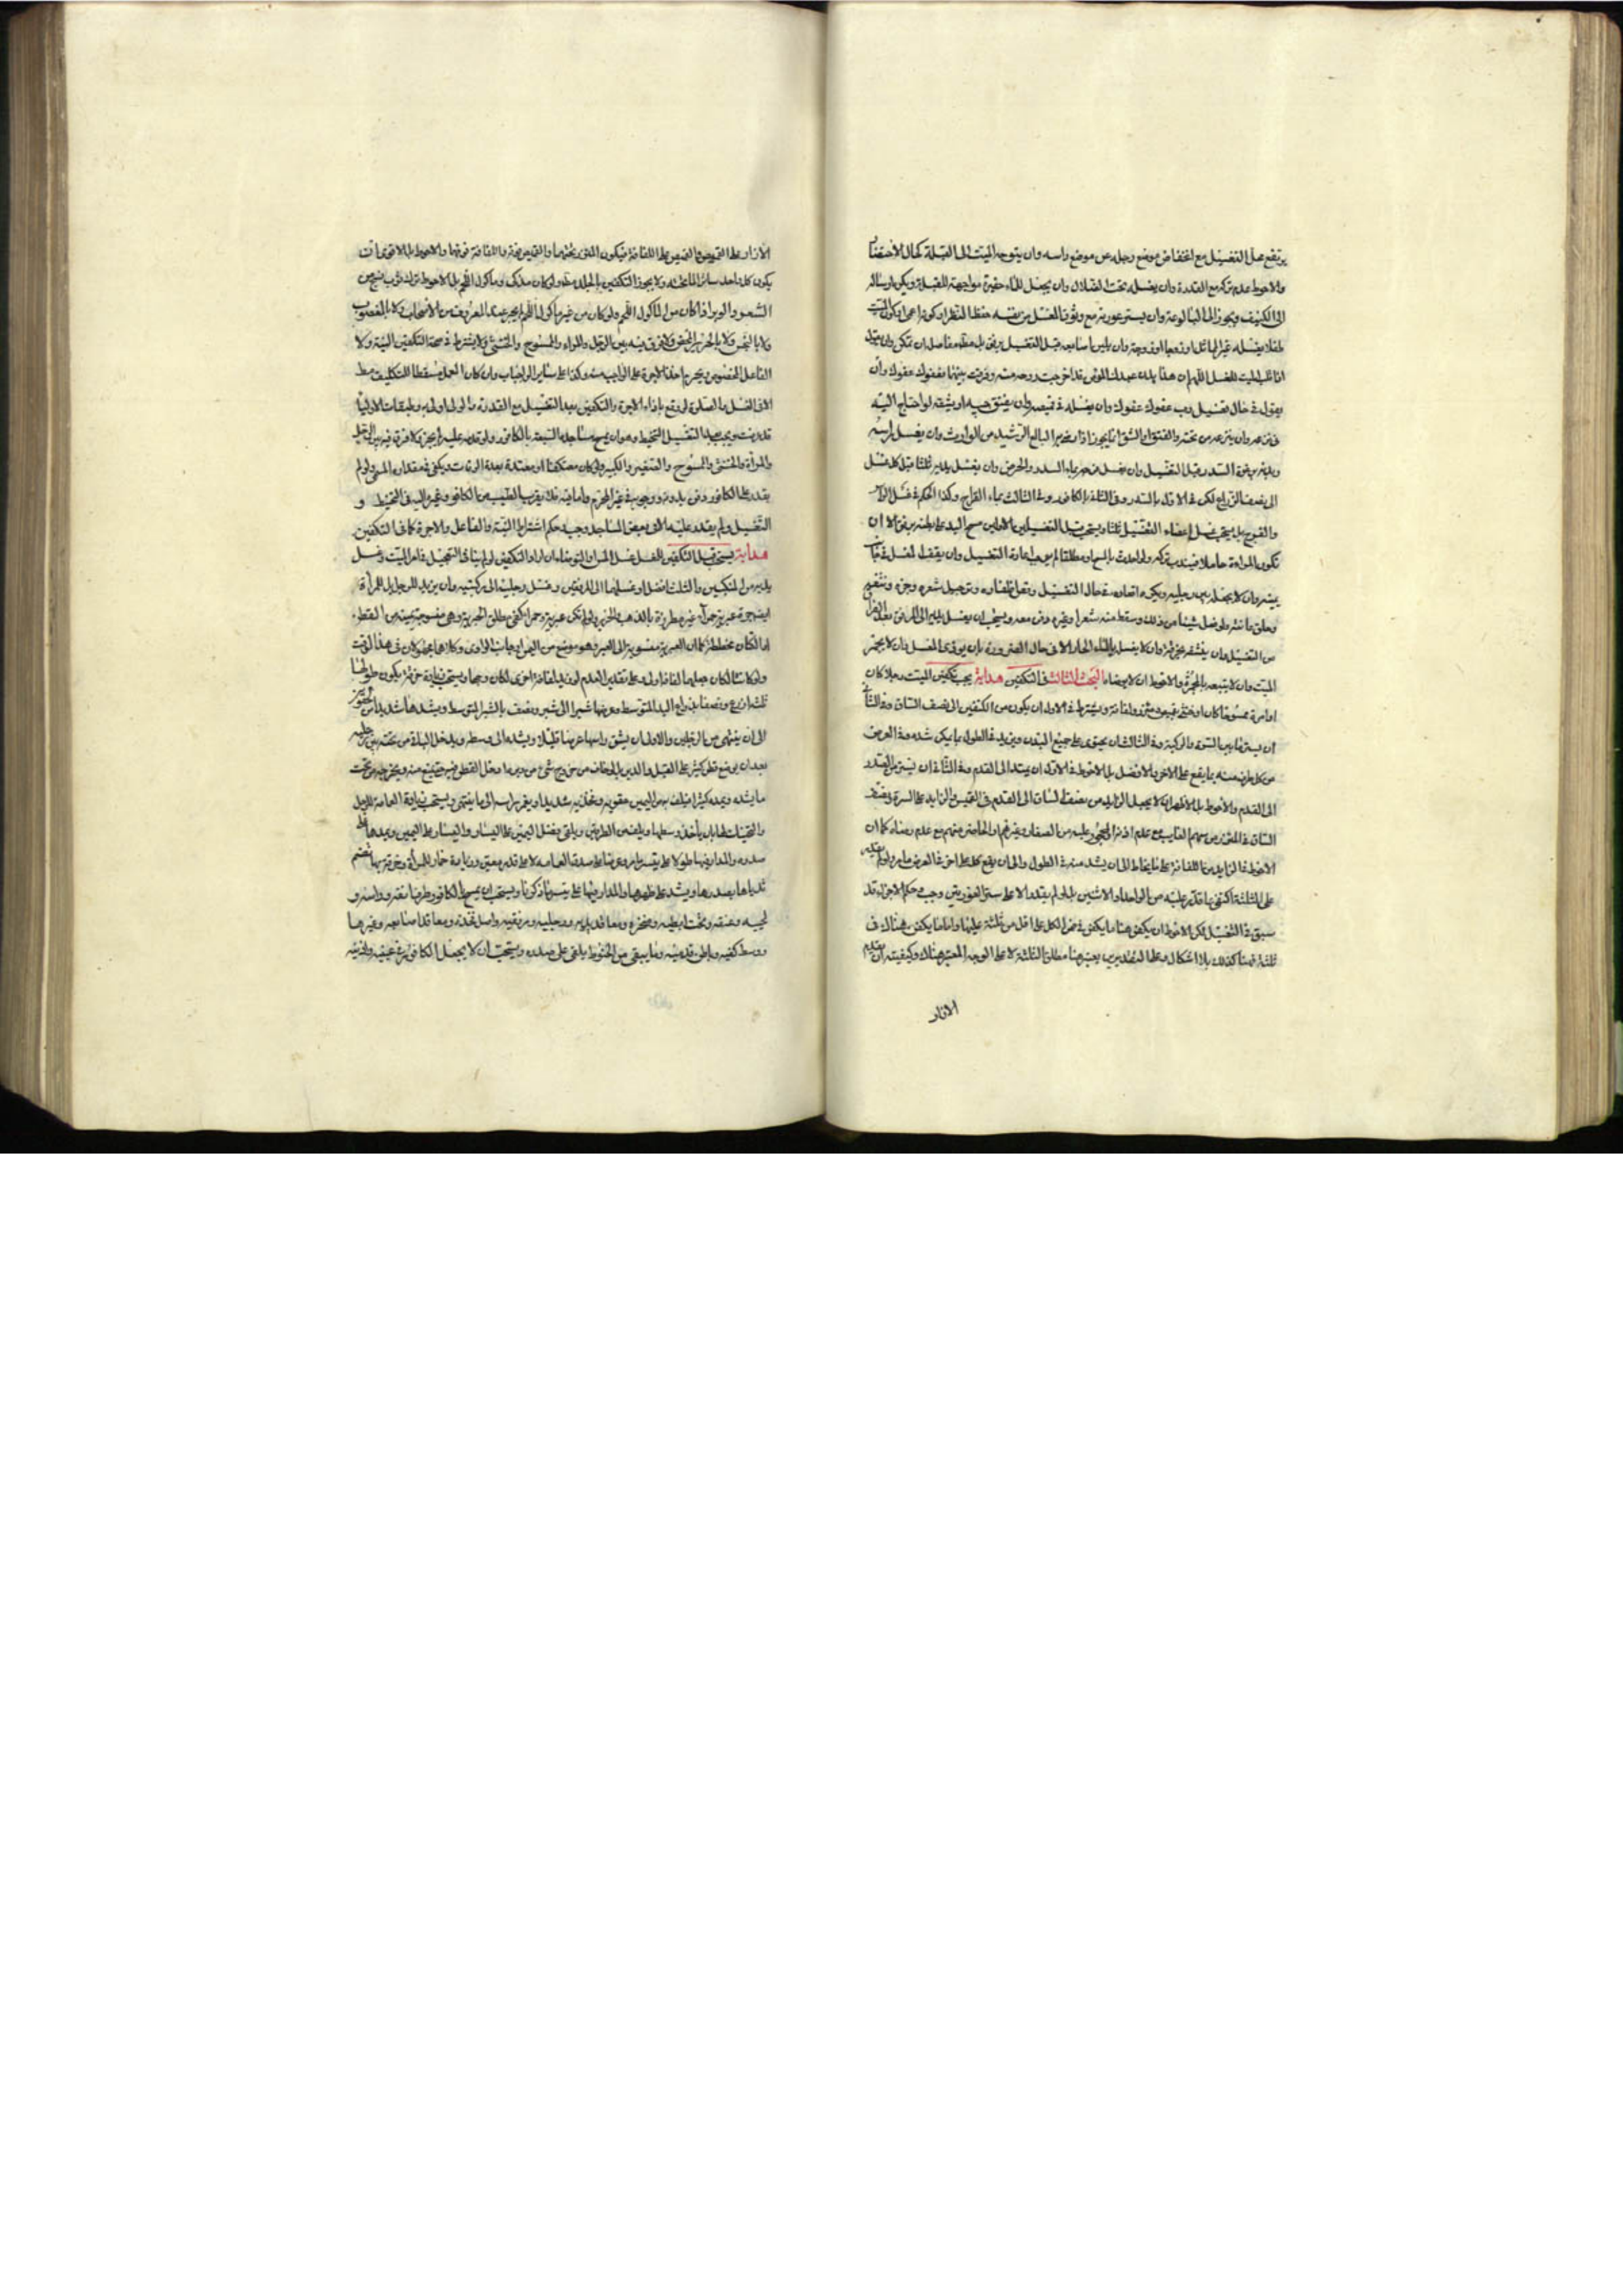 يرتفع محل التغسيل مع انخفاض موضع رجليه عن موضع راسه وان يتوجه الميت الى القبلة كحال الاحتضار
والاحوط عدم تركه مع القدرة وان يغسله تحت الظلال وان يجعل للماء حفيرة مواجهة للقبلة ويكره ارساله
الى الكنيف ويجوز الى البالوعة وان يستر عورته مع وثوق الغسل من نفسه حفظا للنظر او كونه اعمى او كون الميت
طفلا يغسله غير المماثل او زوجا او زوجة وان يلين اصابعه قبل التغسيل برفق بل مطلق مفاصله ان تمكن وان يقول
اذا قلب الميت للغسل اللهم ان هذا بدن عبدك المؤمن قد اخرجت روحه منه وفرقت بينهما فعفوك عفوك وان
يقول في حال تغسيل رب عفوك عفوك وان يغسله في قميصه وان يفتق جيبه او يشقه لو احتاج اليه
في نزعه وان ينزعه من تحته والفتق او الشق انما يجوز اذا رضي به البالغ الرشيد من الوارث وان يغسل راسه
وبدنه برغوة السدر قبل التغسيل وان يغسل فرجه بماء السدر والحرض وان يغسل يديه ثلثا قبل كل غسل
الى نصف الذراع لكن في الاول بالسدر وفي الثاني بالكافور وفي الثالث بماء القراح وكذا الحكم في غسل الراس
والفرج بل يستحب غسل اعضاء التغسيل ثلثا ويستحب قبل التغسيلين الاولين مسح اليد على بطنه برفق الا ان
تكون المراءة حاملا فيندب تركه ولو احدث بالمسح او مطلقا لم يجب اعادة التغسيل وان يقف الغسل في جانب
يمينه وان لا يجعله بين رجليه ويكره اقعاده في حال التغسيل وقص اظفاره وترجيل شعره وجزه ونتفه
وحلق عانته ولو فصل شيئا من ذلك وسقط منه شعر او غيره دفن معه ويستحب ان يغسل يديه الى المرفق بعد الفراغ
من التغسيل وان ينشفه بخرقة وان لا يغسل بالماء الحار الا في حال الضرورة بان يوذي المغسل وان لا يجمر
الميت وان لا يتبعه بالمجمرة والاحوط ان لا يوضاه البحث الثالث في التكفين هداية يجب تكفين الميت رجلا كان
او امرة ممسوحا كان او خنثى بقميص ومئزر ولفافة ويشترط في الاول ان يكون من الكتفين الى نصف الساق وفي الثاني
ان يستر ما بين السرة والركبة وفي الثالث ان يحتوي على جميع البدن ويزيد في الطول بما يمكن شده وفي العرض
من كل طرف منه بما يقع على الاخر والافضل بل الاحوط في الاول ان يمتد الى القدم وفي الثاني ان يستر بين الصدر
الى القدم والاحوط بل الاظهر ان لا يجعل الزايد من نصف الساق الى القدم في القميص والزايد على السرة ونصف
الساق في المئزر من سهام الغايب مع عدم اذنه او المحجور عليه من الصغار وغيرهم او الحاضر منهم مع عدم رضاه كما ان
الاحوط في الزايد من اللفافة على ما يحتاط الى ان يشد منه في الطول والى ان يقع كل على اخر في العرض ما مر ولو لم يقدر
على الثلثة اكتفى بما قدر عليه من الواحد او الاثنين بل لو لم يقدر الا على ستر العورتين وجب وحكم الاجزاء قد
سبق في التغسيل لكن الاحوط ان يكفن هنا ما يكفن في
ثلثة فهنا كذلك بلا اشكال وعلى التقديرين يعتبر هنا مطلق الثلثة لا على الوجه المعتبر هناك وكيفيته ان يقدم
الازار
الازار على القميص والقميص على اللفافة فيكون المئزر تحتهما والقميص فوقه واللفافة فوقهما والاحوط بل الاقوى ان
يكون كل واحد ساترا لما تحته ولا يجوز التكفين بالجلد مطلقا ولو كان مذكى وماكول اللحم بل الاحوط ترك ثوب نسج من
الشعر والوبر اذا كان من الماكول اللحم ولو كان من غير ماكول اللحم لم يجز عند المعروف من الاصحاب ولا بالمغصوب
ولا بالنجس ولا بالحرير المحض ولا فرق فيه بين الرجل والمراة والممسوح والخنثى ولا يشترط في صحة التكفين النية ولا
الفاعل المخصوص ويحرم اخذ الاجرة على الواجب منه وكذا على ساير الواجبات وان كان العمل مسقطا للتكليف مط
الا في الغسل والصلوة لو وقع بازاء الاجرة والتكفين بعد التغسيل مع القدرة والولي اولى به وطبقات الاولياء
قد عرفت ويجب بعد التغسيل التحنيط وهو ان يمسح مساجده السبعة بالكافور ولو قدمه عليه لم يجز ولا فرق فيه بين الرجل
والمراة والخنثى والممسوح والصغير والكبير ولو كان معتكفا او معتدة بعدة الوفات ويكفي في مقداره المسمى ولو لم
يقدر على الكافور دفن بدونه ووجوبه في غير المحرم واما فيه فلا يقرب الطيب من الكافور وغيره اليه في التحنيط و
التغسيل ولو لم يقدر عليه الا في بعض المساجد وجب وحكم اشتراط النية والفاعل والاجرة كما في التكفين
هداية يستحب قبل التكفين للغاسل غسل المس او التوضاء ان اراد التكفين لو لم يناف التعجيل في امر الميت وغسل
يديه من المنكبين والثلث افضل او غسلهما الى المرفقين وغسل رجليه الى ركبتيه وان يزيد للرجل بل للمراة
ايضا حبرة عبرية حمراء غير مطرزة بالذهب والحرير ولو لم تكن عبرية وحمراء كفى مطلق الحبرية وهي منسوجة يمنية من القطن
او الكتان مخططة كما ان العبرية منسوبة الى العبر وهو موضع من اليمن او جانب الوادي وكلاهما مجهولان في هذا الوقت
ولو كانتا لكان جعلهما لفافة اولى وعلى تقدير العدم لو زيد لفافة اخرى لكان وجها ويستحب زيادة خرقة يكون طولها
ثلثة اذرع ونصفا بذراع اليد المتوسط وعرضها شبرا الى شبر ونصف بالشبر المتوسط ويشدها شديدا من الحقو
الى ان ينتهي من الرجلين والاولى ان يشق راسها عرضا قليلا ويشده الى وسطه ويدخل الباقي من تحته بين رجليه
بعد ان يوضع قطن كثير على القبل والدبر بل لو خاف من خروج شئ من دبره ادخل القطن فيه حتى يمنع منه ويخرجه من تحت
ما يشده ويمده كثيرا فيلفه من اليمين حقويه وفخذيه شديدا ويغرز راسه الى ما ينتهي ويستحب زيادة العمامة للرجل
والتحنيك لها بان ياخذ وسطها ويلفه من الطرفين ويلقي فضل اليمين على اليسار واليسار على اليمين ويمدها على
صدره والمدار فيها طولا على تيسر ما مر وعرضا على صدق العمامة لا على قدر معين وزيادة خمار للمراة وخرقة بها تضم
ثدياها بصدرها ويشد على ظهرها والمدار فيها على تيسر ما ذكرنا ويستحب ان يمسح بالكافور طرف انفه وراسه و
لحيته وعنقه وتحت ابطيه وصدره ومعاقد يديه ورجليه ومرفقيه واصل فخذه ومعاقد اصابعه وغيرها
ووسط كفيه وباطن قدميه وما يبقى من الحنوط يلقى على صدره ويستحب ان لا يجعل الكافور في عينيه واذنيه